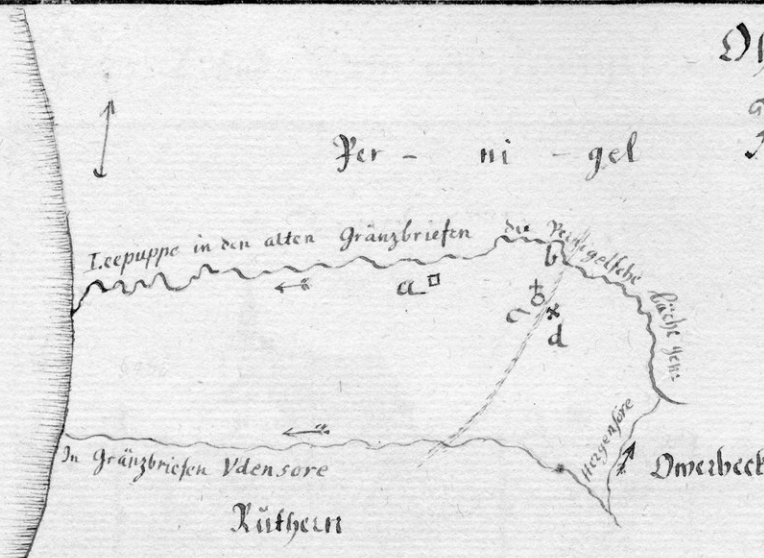 Per - ni - gel
Leepuppe in den alten Gränzbriefen die Pernigelsche bäche gen:
a
b
c
d
Hergensore
In Gränzbriefen Vdensore
Owerbeck
Rüthern